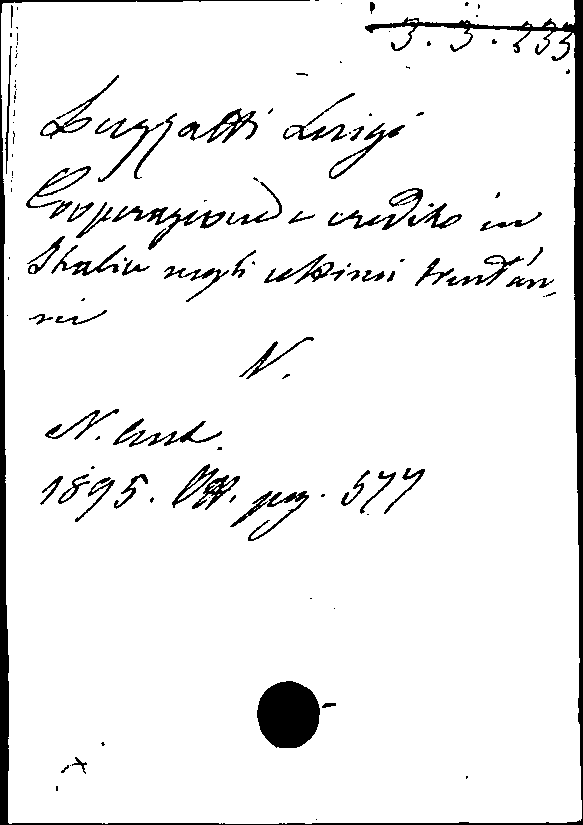 3. 3. 233.
Luzzatti Luigi
Cooperazione e credito in
Italia negli ultimi trent'an,
ni
N.
N. Ant.
1895. Ott. pag. 577